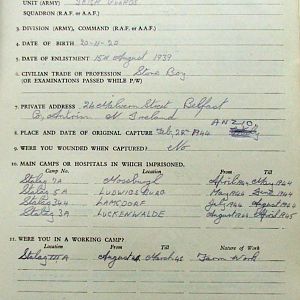 UNIT (ARMY) IRISH GUARDS
SQUADRON (R.A.F. or A.A.F.)
3. DIVISION (ARMY), COMMAND (R.A.F. or A.A.F.)
4. DATE OF BIRTH 20-11-20
5. DATE OF ENLISTMENT 15th August 1939
6. CIVILIAN TRADE OR PROFESSION Store Boy
(OR EXAMINATIONS PASSED WHILE P/W)
7. PRIVATE ADDRESS 24 Street Belfast
Co Antrim N Ireland
ANZIO
8. PLACE AND DATE OF ORIGINAL CAPTURE Feb, 25th 1944
9. WERE YOU WOUNDED WHEN CAPTURED? No
10. MAIN CAMPS OR HOSPITALS IN WHICH IMPRISONED.
Camp No. Location From Till
Stalag 7A Moosburgh April 1944 May 1944
Stalag 5A LUDWIGSBURG May 1944 June 1944
Stalag 344 LAMSDORF July 1944 August 1944
Stalag 3A LUCKENWALDE August 1944 April 1945
11. WERE YOU IN A WORKING CAMP?
From Till Nature of Work
Stalag III A August 44 March 45 Farm Work